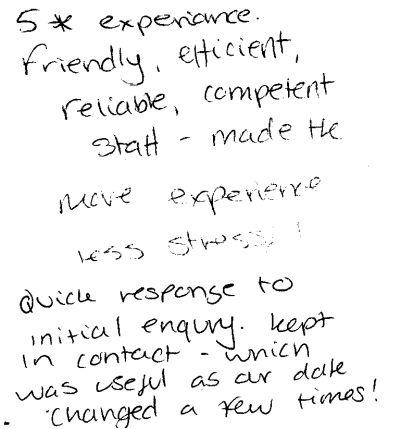 5 * experiance.
friendly, efficient,
reliable, competent
staff - made the
move experience
less stress !
Quick response to
initial enqury. kept
in contact - which
was useful as our date
changed a few times!